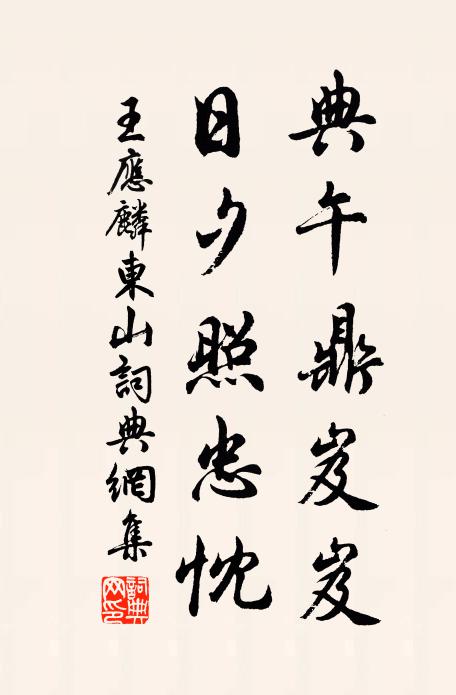 典午鼎岌岌
日夕照忠忱
王應麟東山詞典網集
詞典網印